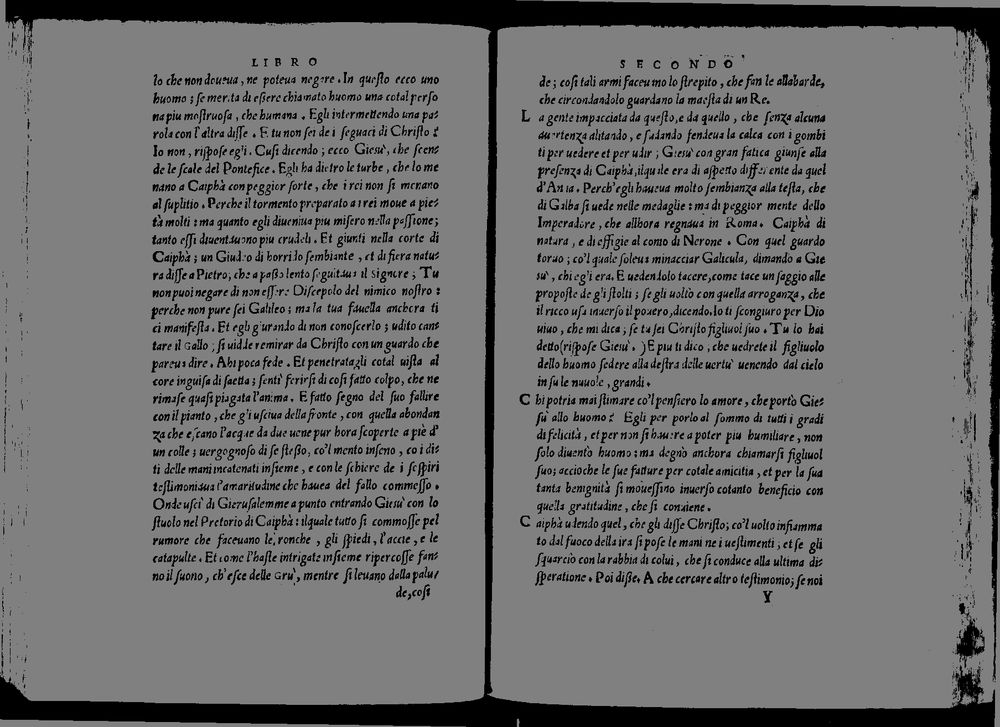 LIBRO
lo che non doueua, ne poteua negare. In questo ecco uno
huomo; se merita di essere chiamato huomo una cotal perso
na piu mostruosa, che humana. Egli intermettendo una pa-
rola con l'altra disse. E tu non sei de i seguaci di Christo?
Io non, rispose egli. Cusi dicendo; ecco Giesù, che scen-
de le scale del Pontefice. Egli ha dietro le turbe, che lo me
nano a Caiphà con peggior sorte, che i rei non si menano
al suplitio. Perche il tormento preparato a i rei moue a pie-
tà molti: ma quanto egli diueniua piu misero nella passione;
tanto essi diuentauono piu crudeli. Et giunti nella corte di
Caiphà; un Giudeo di horrilo sembiante, et di fiera natu-
ra disse a Pietro, che a passo lento seguitaua il Signore; Tu
non puoi negare di non essere Discepolo del nimico nostro:
perche non pure sei Galileo; ma la tua fauella anchora ti
ci manifesta. Et egli giurando di non conoscerlo; udito can-
tare il Gallo; si uidde remirar da Christo con un guardo che
pareua dire. Ahi poca fede. Et penetratagli cotal uista al
core inguisa di saetta; sentì ferirsi di cosi fatto colpo, che ne
rimase quasi piagata l'anima. E fatto segno del suo fallire
con il pianto, che gli usciua della fronte, con quella abondan
za che escano l'acque da due uene pur hora scoperte a piè d'
un colle; uergognoso di se stesso, co'l mento inseno, co i di-
ti delle mani incatenati insieme, e con le schiere de i sospiri
testimoniaua l'amaritudine che hauea del fallo commesso.
Onde uscì di Gierusalemme a punto entrando Giesù con lo
stuolo nel Pretorio di Caiphà: ilquale tutto si commosse pel
rumore che faceuano le ronche, gli spiedi, l'accie, e le
catapulte. Et come l'haste intrigate insieme ripercosse fan-
no il suono, ch'esce delle Grù, mentre si leuano dalla palu/
de, cosi
SECONDO
de; cosi tali armi faceumo lo strepito, che fan le allabarde,
che circondandolo guardano la maesta di un Re.
La gente impacciata da questo, e da quello, che senza alcuna
auertenza alitando, e sudando fendeua la calca con i gombi
ti per uedere et per udir; Giesù con gran fatica giunse alla
presenza di Caiphà, ilquale era di aspetto differente da quel
d'Anna. Perch'egli haueua molto sembianza alla testa, che
di Galba si uede nelle medaglie: ma di peggior mente dello
Imperadore, che allhora regnaua in Roma. Caiphà di
natura, e di effigie al como di Nerone. Con quel guardo
toruo; co'l quale soleua minacciar Galicula, dimando a Gie
sù, chi egli era. E uedendolo tacere, come tace un saggio alle
proposte de gli stolti; se gli uoltò con quella arroganza, che
il ricco usa inuerso il pouero, dicendo. Io ti scongiuro per Dio
uiuo, che mi dica; se tu sei Christo figliuol suo. Tu lo hai
detto (rispose Giesù.) E piu ti dico, che uedrete il figliuolo
dello huomo sedere alla destra delle uertù uenendo dal cielo
in su le nuuole, grandi.
Chi potria mai stimare co'l pensiero lo amore, che portò Gie-
sù allo huomo? Egli per porlo al sommo di tutti i gradi
di felicità, et per non si hauere a poter piu humiliare, non
solo diuentò huomo: ma degnò anchora chiamarsi figliuol
suo; accioche le sue fatture per cotale amicitia, et per la sua
tanta benignità si mouessino inuerso cotanto beneficio con
quella gratitudine, che si conuiene.
Caiphà udendo quel, che gli disse Christo; co'l uolto infiamma
to dal fuoco della ira si pose le mani ne i uestimenti; et se gli
squarciò con la rabbia di colui, che si conduce alla ultima di-
speratione. Poi disse. A che cercare altro testimonio; se noi
Y